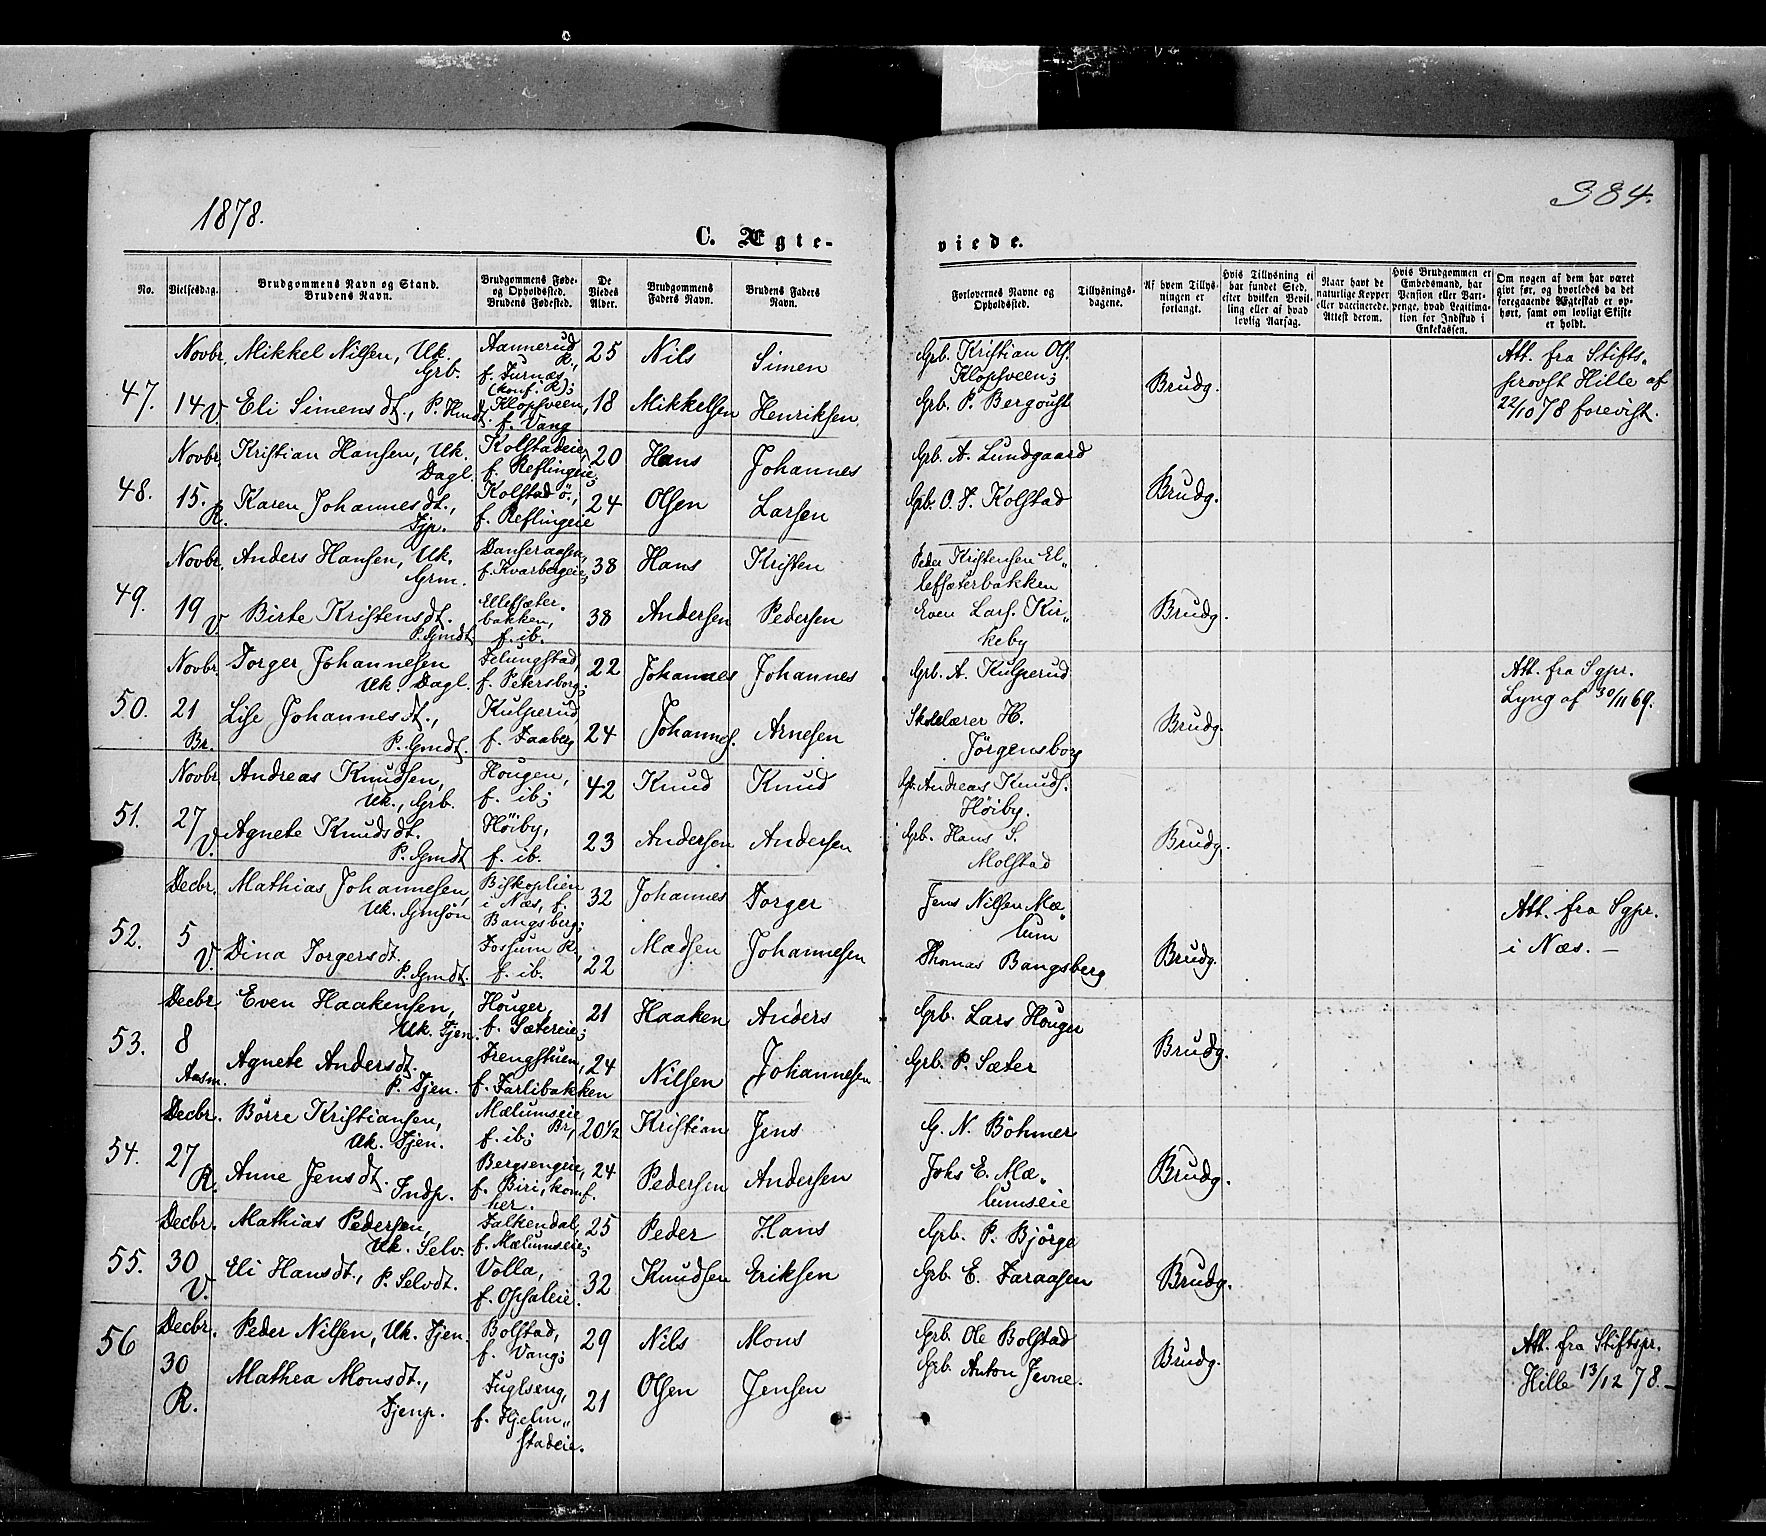 1878.
384.
C. Ægte-
viede.
No.
Vielsesdag.
Brudgommens Navn og Stand.
Brudens Navn.
Brudgommens Føde-
og Opholdssted.
Brudens Fødested.
De
Viedes
Alder.
Brudgommens
Faders Navn.
Brudens Faders
Navn.
Forlovernes Navne og
Opholdssted.
Tillysnings-
dagene.
Af hvem Tillys-
ningen er
forlangt.
Hvis Tillysning ei
har fundet Sted,
efter hvilken Bevil-
ling eller af hvad
lovlig Aarsag.
Naar havt de
naturlige Kopper
eller vaccinerede.
Attest derom.
Hvis Brudgommen er
Embedsmand, har
Pension eller Vart-
penge, hvad Legitima-
tion for Indskud i
Enkekassen.
Om nogen af dem har været
givt før, og hvorledes da det
foregaaende Ægteskab er op-
hørt, samt om lovligt Skifte
er holdt.
47.
Novbr.
14 V.
Mikkel Nilsen, Uk.
Grb.
Eli Simensdt., P.
Aannerud
R.,
f. Furnæs
(konf. R);
Klopsveen,
f. Vang
25
18
Nils
Mikkelsen
Simen
Henriksen
Grb. Kristian Ols.
Klopsveen;
Grb. P. Bergoust
Brudg.
Att. fra Stifts-
provst Hille af
22/10 78 forevist.
48.
Novbr.
15.
R.
Kristian Hansen, Uk.
Dagl.
Karen Johannesdt.,
Tjp.
Kolstadeie,
f. Reflingeie;
Kolstad ö.,
f. Reflingeie
20
24
Hans
Olsen
Johannes
Larsen
Grb. A. Lundgaard
Grb. O. F. Kolstad
Brudg.
49.
Novbr.
19 V.
Anders Hansen, Uk.
Grm.
Birte Kristensdt.
P. Gmdt.
Danseraasen,
f. Kvarbergeie;
Ellefsæter-
bakken,
f. ib.
38
38
Hans
Andersen
Kristen
Pedersen
Peder Kristensen El-
lefsæterbakken
Even Lars. Kir-
keby
Brudg.
50.
Novbr.
21
Br.
Torger Johannesen
Uk. Dagl.
Lise Johannesdt.,
P. Gmdt.
f. Petersborg;
Kulperud,
f. Faaberg
22
24
Johannes
Johannes.
Johannes
Arnesen
Grb. A. Kulperud
Skolelærer H.
Jörgensborg
Brudg.
Att. fra Sgpr.
Lyng af 30/11 69.
51.
Novbr.
27
V.
Andreas Knudsen,
Uk., Grb.
Agnete Knudsdt.
P. Gmdt.
Hougen,
f. ib;
Höiby,
f. ib.
42
23
Knud
Andersen
Knud
Andersen
Gb. Andreas Knuds.
Höiby.
Grb. Hans S.
Molstad
Brudg.
52.
Decbr.
5
V.
Mathias Johannesen,
Uk. Gmsön
Dina Torgersdt.
P. Gmdt.
Biskoplien
i Næs, f.
Bangsberg;
Fossum R,
f. ib.
32
22
Johannes
Madsen
Torger
Johannesen
Jens Nilsen Mæ-
lum
Thomas Bangsberg
Brudg.
Att. fra Sgpr.
i Næs. —
53.
Decbr.
8
Aasm.
Even Haakensen,
Uk. Tjen.
Agnete Andersdt.
P. Tjen.
Houger,
f. Sætereie;
Trengstuen,
f. Farlibakken
21
24
Haaken
Nilsen
Anders
Johannesen
Grb. Lars Houger
Grb. P. Sæter
Brudg.
54.
Decbr.
27
R.
Börre Kristiansen,
Uk. Tjen.
Anne Jensdt.
Indp.
Mælumseie
Br,
f. ib;
Bergsengeie,
f. Biri, konf.
her.
20 1/2
24
Kristian
Pedersen
Jens
Andersen
G. N. Böhmer
Johs E. Mæ-
lumseie
Brudg.
55.
Decbr.
30
V.
Mathias Pedersen,
Uk. Selv.
Eli Hansdt., P. Selvdt.
Falkendal,
f. Mælumseie;
Volla,
f. Opsaleie.
25
32
Peder
Knudsen
Hans
Eriksen
Grb. P. Bjørge
Grb. E. Faraasen
Brudg.
56
Decbr.
30
R.
Peder Nilsen, Uk. Tjen.
Mathea Monsdt.,
Tjenp.
Bolstad,
f. Vang;
Fuglseng,
f. Hjelm-
stadeie.
29
21
Nils
Olsen
Mons
Jensen
Grb. Ole Bolstad
Grb. Anton Jevne.
Brudg.
Att. fra Stiftspr.
Hille 13/12 78. —